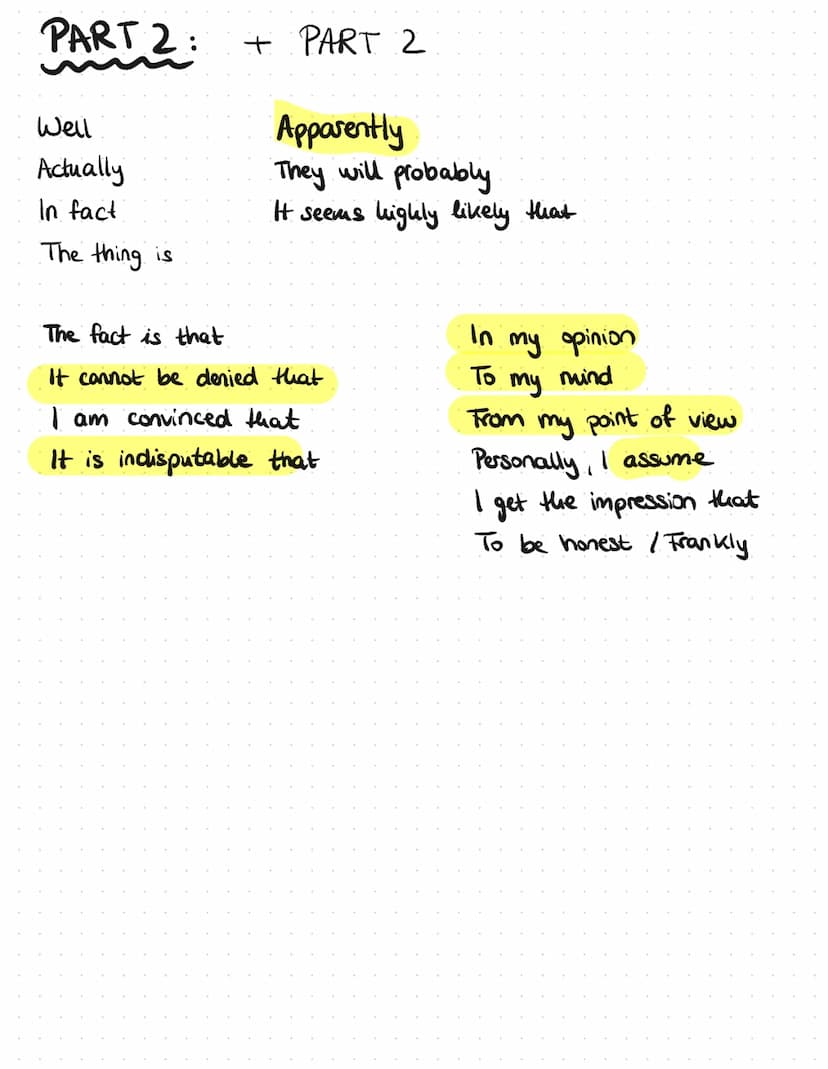 PART 2: + PART 2
Well
Actually
In fact
The thing is
Apparently
They will probably
It seems highly likely that
The fact is that
It cannot be denied that
I am convinced that
It is indisputable that
In my opinion
To my mind
From my point of view
Personally, I assume
I get the impression that
To be honest / Frankly